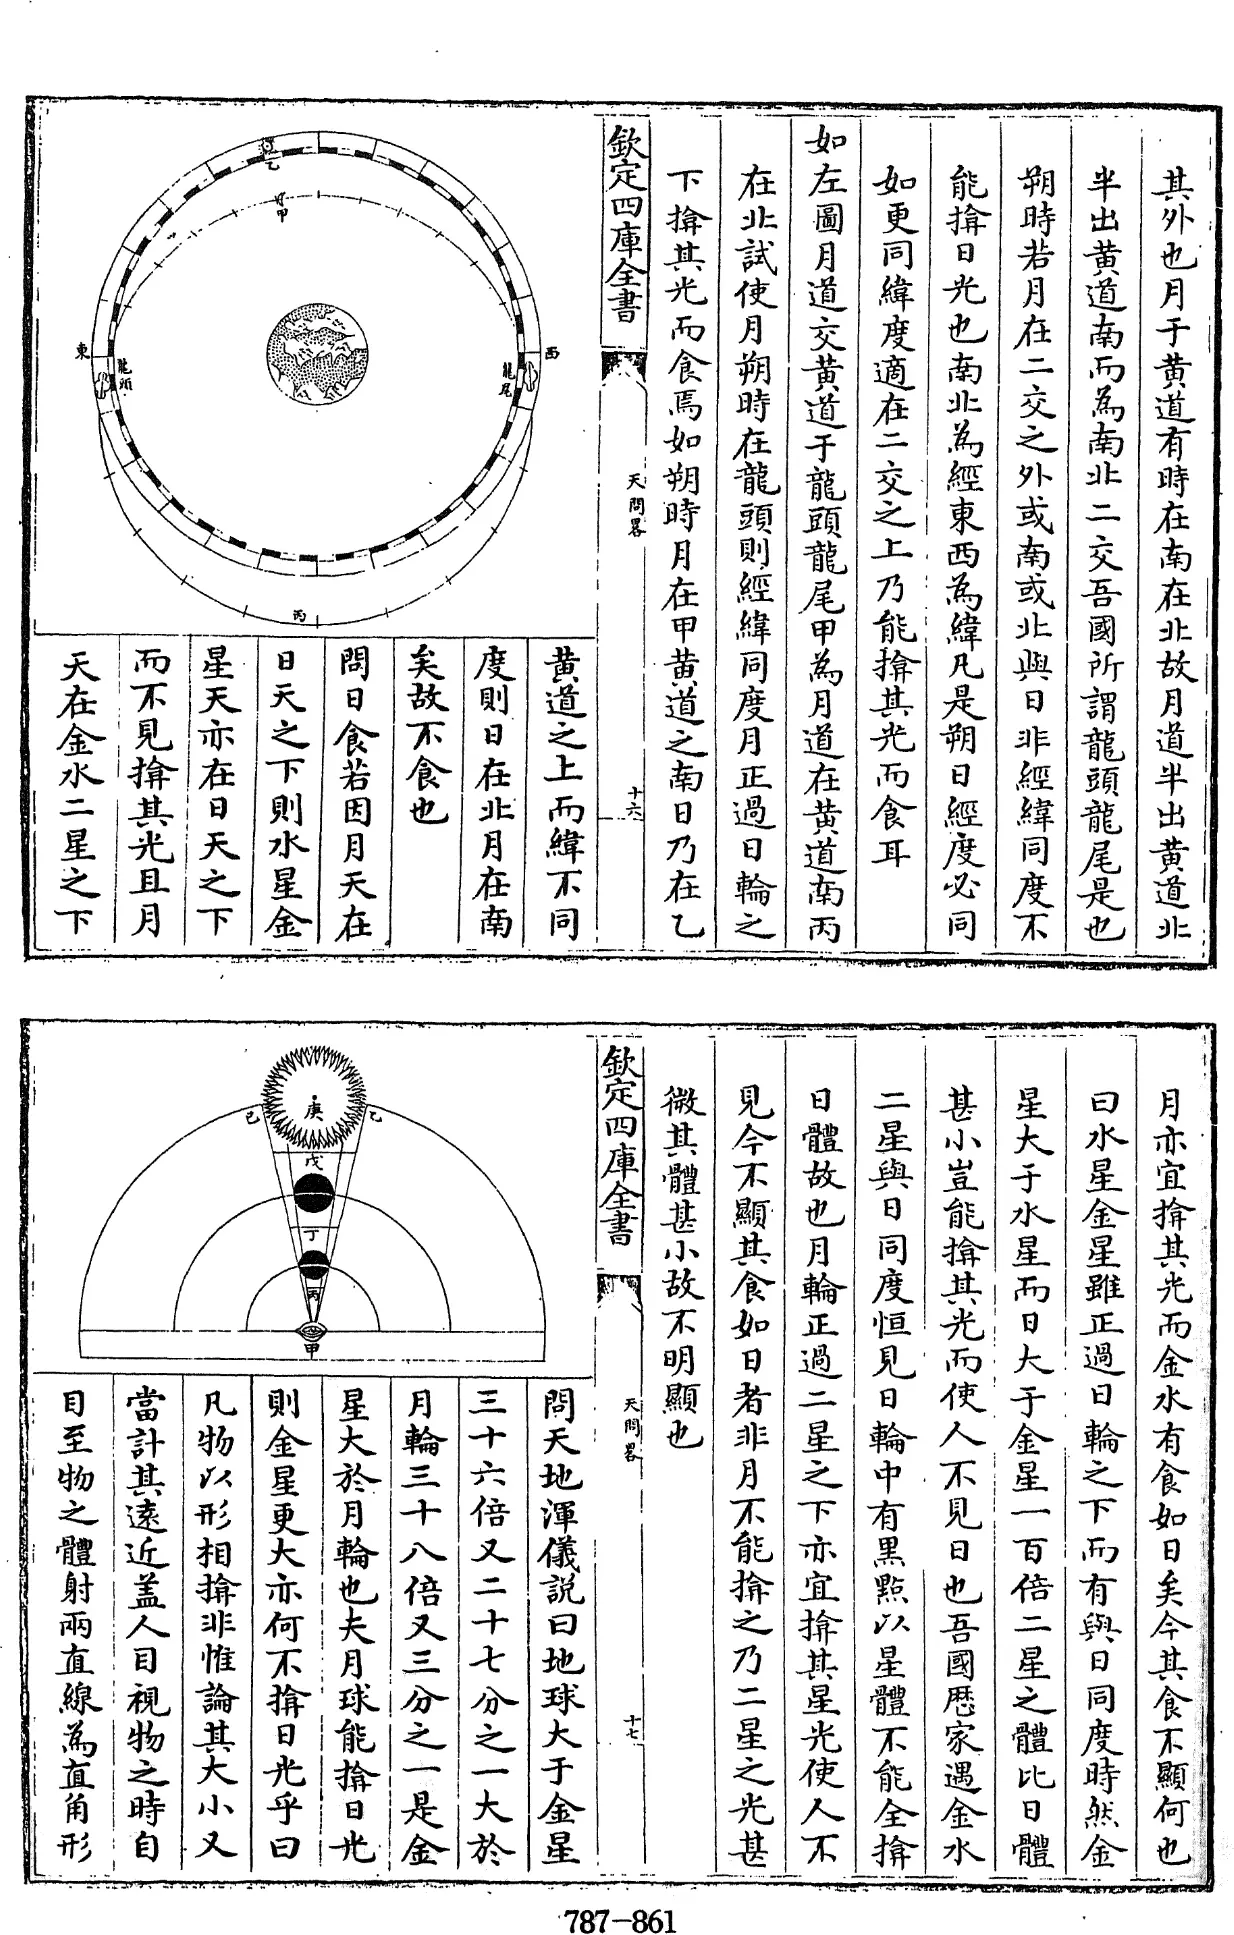 其外也月于黄道有時在南在北故月道半出黄道北
半出黄道南而為南北二交吾國所謂龍頭龍尾是也
朔時若月在二交之外或南或北與日非經緯同度不
能揜日光也南北為經東西為緯凡是朔日經度必同
如更同緯度適在二交之上乃能揜其光而食耳
如左圖月道交黄道于龍頭龍尾甲為月道在黄道南丙
在北試使月朔時在龍頭則經緯同度月正過日輪之
下揜其光而食焉如朔時月在甲黄道之南日乃在乙
欽定四庫全書
天問畧
十六
乙
甲
東
龍頭
龍尾
西
丙
黄道之上而緯不同
度則日在北月在南
矣故不食也
問日食若因月天在
日天之下則水星金
星天亦在日天之下
而不見揜其光且月
天在金水二星之下
月亦宜揜其光而金水有食如日矣今其食不顯何也
曰水星金星雖正過日輪之下而有與日同度時然金
星大于水星而日大于金星一百倍二星之體比日體
甚小豈能揜其光而使人不見日也吾國厯家遇金水
二星與日同度恒見日輪中有黒㸃以星體不能全揜
日體故也月輪正過二星之下亦宜揜其星光使人不
見今不顯其食如日者非月不能揜之乃二星之光甚
微其體甚小故不明顯也
欽定四庫全書
天問畧
十七
庚
己
乙
戊
丁
丙
甲
問天地渾儀説曰地球大于金星
三十六倍又二十七分之一大於
月輪三十八倍又三分之一是金
星大於月輪也夫月球能揜日光
則金星更大亦何不揜日光乎曰
凡物以形相揜非惟論其大小又
當計其遠近葢人目視物之時自
目至物之體射兩直線為直角形
787-861